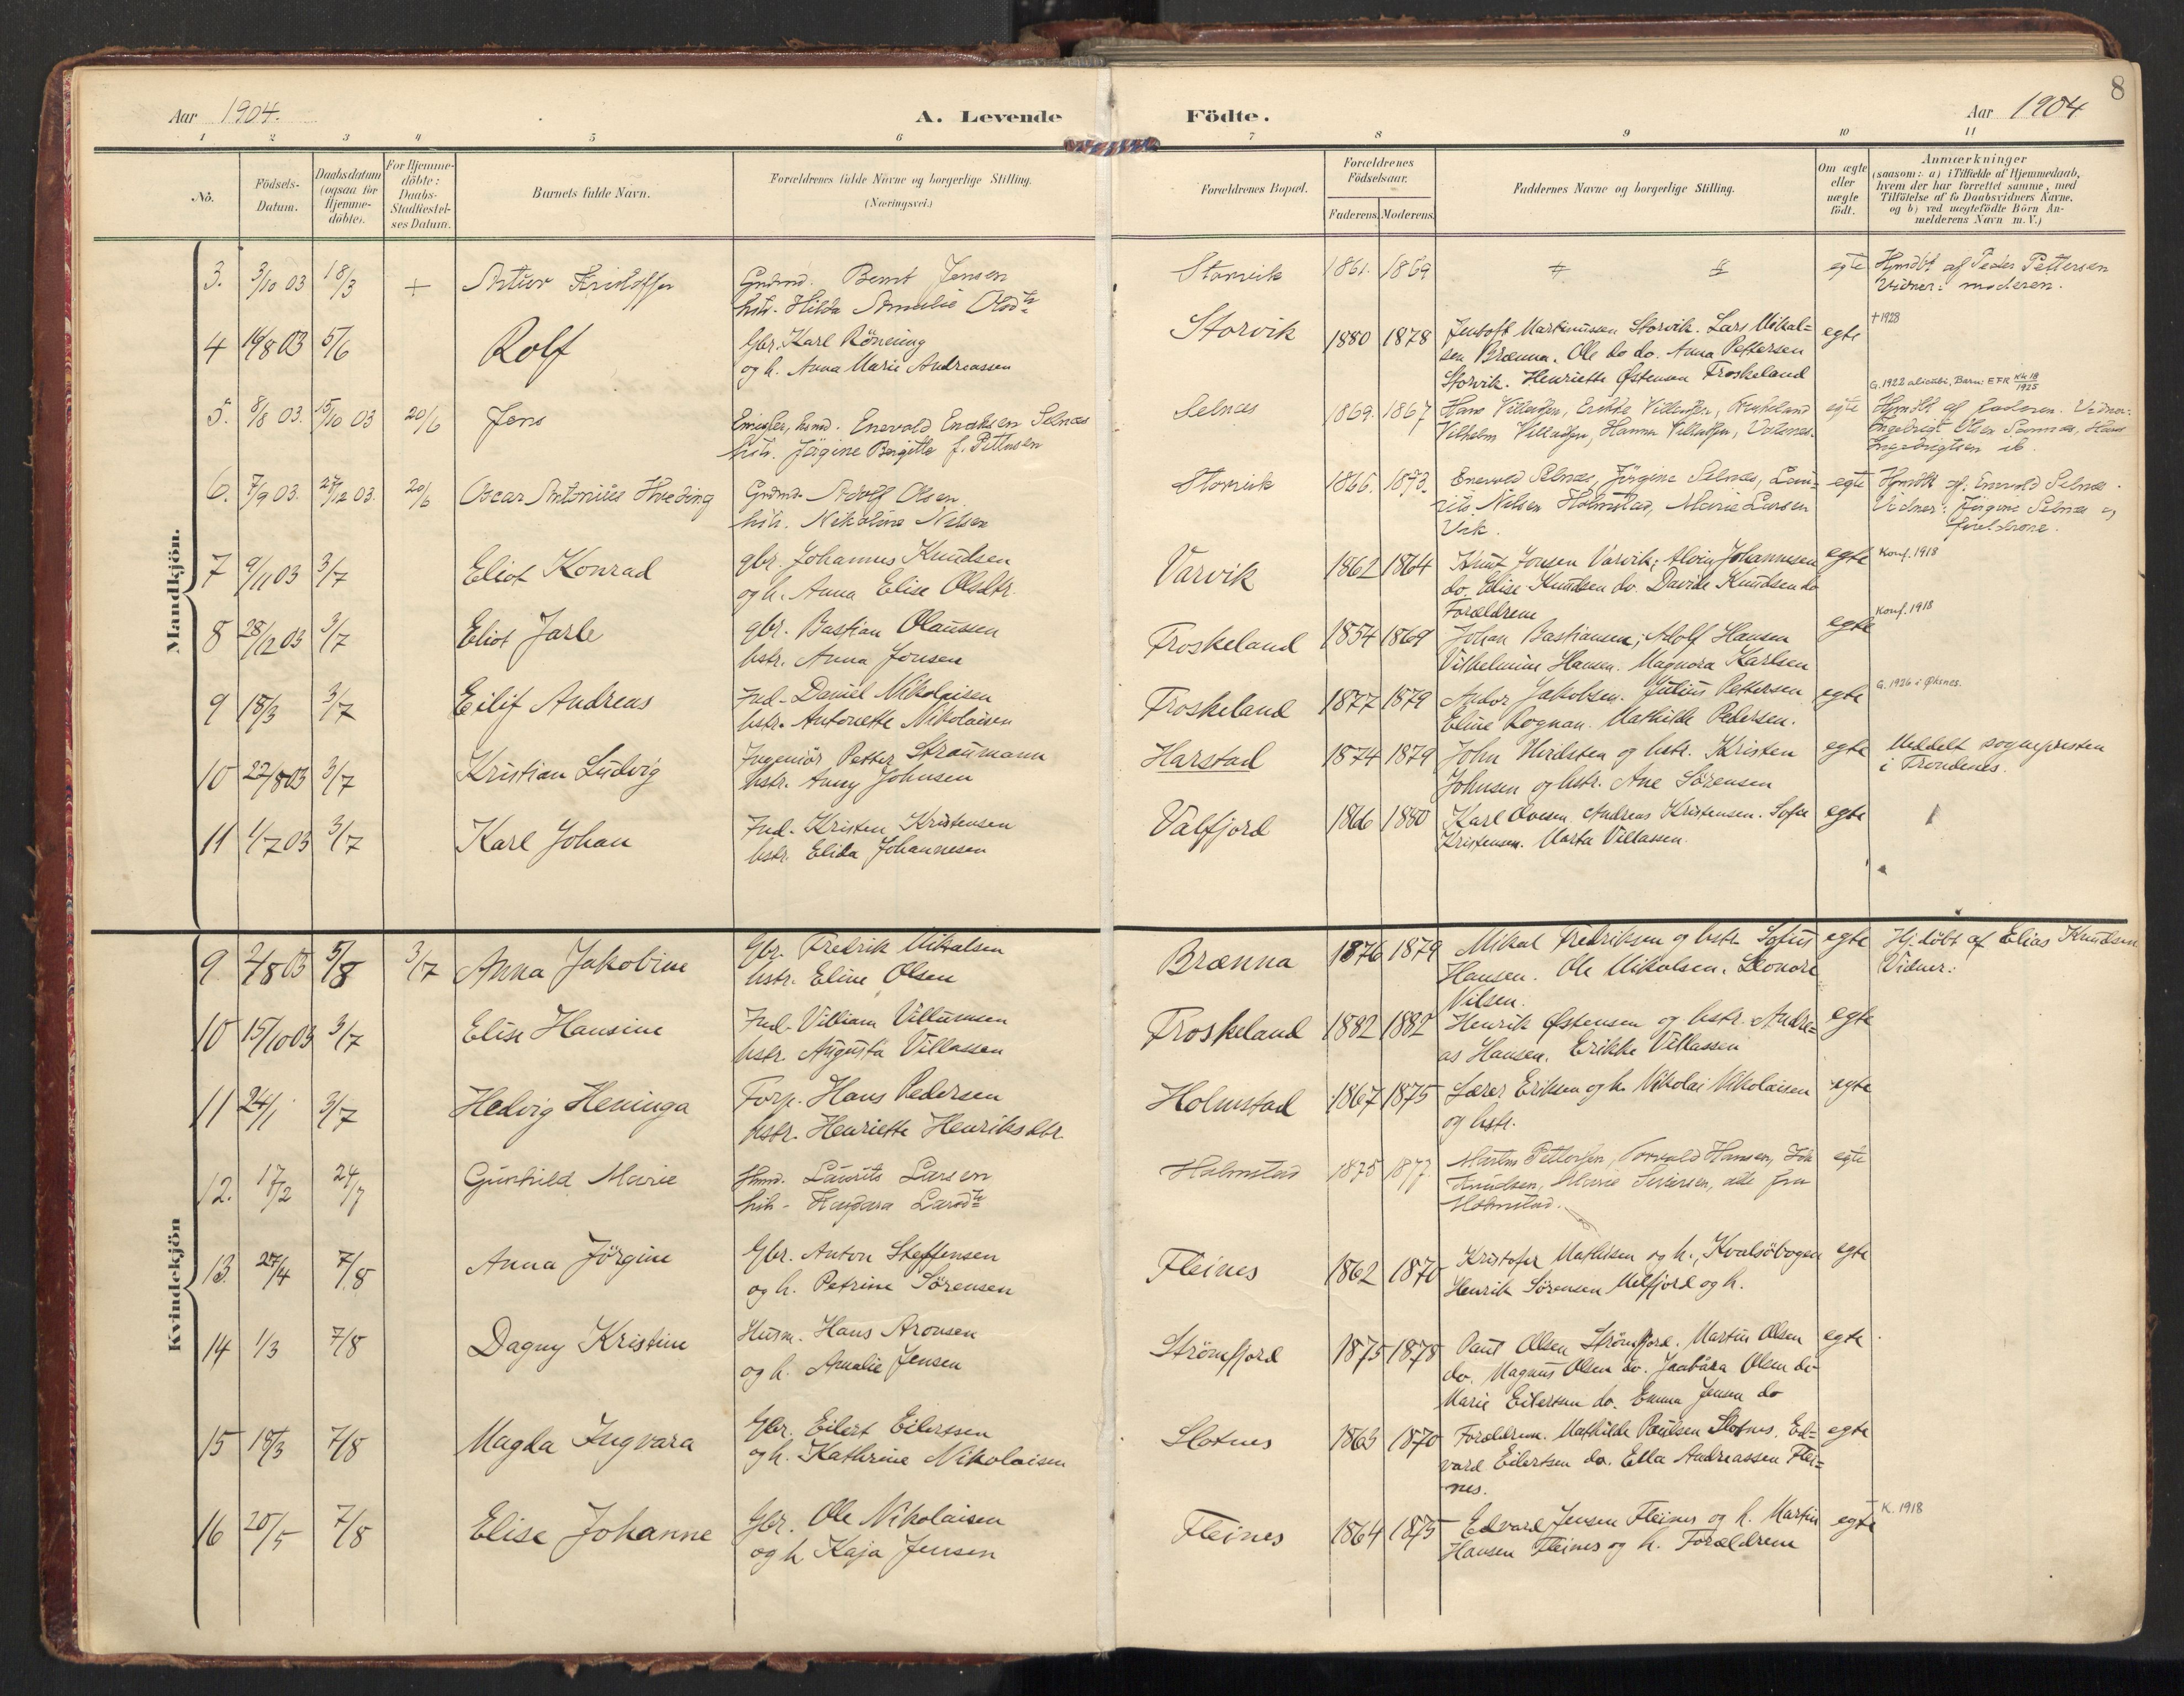 8
Aar 1904.
A. Levende Födte.
Aar 1904
1 2 3 4 5 6 7 8 9 10 11
No.
Födsels-Datum.
Daabsdatum (ogsaa for Hjemme-döbte).
For Hjemme-döbte: Daabs-Stadfæstel-ses Datum.
Barnets fulde Navn.
Forældrenes fulde Navne og borgerlige Stilling. (Næringsvei.)
Forældrenes Bopæl.
Forældrenes Födselsaar.
Faderens. Moderens.
Faddernes Navne og borgerlige Stilling.
Om ægte eller uægte födt.
Anmærkninger
(saasom: a) i Tilfælde af Hjemmedaab,
hvem der har forrettet samme, med
Tilföielse af to Daabsvidners Navne,
og b) ved uægtefödte Börn An-
melderens Navn m. V.)
Mandkjön.
3. 3/10 03 18/3 + Artur Kristoffer Grdmd. Bernt Jensen Storvik 1861. 1869 egte Hjmdbt af Peder Pettersen
hstr. Hilda Amalie Olsdtr Vidner: moderen.
4 14/8 03 5/6 Rolf Gbr. Karl Rönning Storvik 1880 1878 Jentoft Martinussen Storvik. Lars Mikal= egte † 1928
og h. Anna Marie Andreassen sen Brænna. Ole do do. Anna Pettersen
Storvik. Henriette Østensen Froskeland
G. 1922 Barn: EFR 1925
5. 8/8 03. 15/10 03 20/6 Jens Enevold Enoksen Selnæs Selnæs 1869. 1867 Hans Villadsen, Erikke Villadsen, Froskeland egte Hjmdbt af faderen. Vidner:
hstr. Jörgine Bergitte f. Pettersen Vilhelm Villadsen, Hanna Villadsen, Engebrigt Olsen Hans
Ingebrigtsen ib.
6. 7/9 03. 27/12 03. 20/6 Oscar Antonius Hveding Grdmd. Adolf Olsen Storvik 1866. 1873. Enevold Selnæs, Jörgine Selnæs, Lau= egte Hjmdbt af: Enevold Selnæs.
hstr. Nikoline Nilsen rits Nilsen Holmstad, Marie Larsen Vidner: Jörgine Selnæs og
Vik. forældrene.
7 9/11 03 3/7 Eliot Konrad gbr. Johannes Knudsen Varvik 1862 1864 Knut Jonsen Varvik, Alvin Johannesen egte Konf. 1918
og h. Anna Elise Olsdtr. do. Elise Knudsen do. Davide Knudsen do
Forældrene
8 28/12 03 3/7 Eliot Jarle gbr. Bastian Olaussen Froskeland 1854 1869 Johan Bastiansen, Adolf Hansen egte Konf. 1918
hstr. Anna Jonsen Vilhelmine Hansen. Magnora Karlsen
9 18/3 3/7 Eilif Andreas Ind. Daniel Nikolaisen Froskeland 1877 1879 Andor Jakobsen. Julius Pettersen egte G. 1926 i Øksnes.
hstr. Antonette Nikolaisen Eline Rognan. Mathilde Pedersen.
10 22/8 03 3/7 Kristian Ludvig Ingeniör Petter Straumann Harstad 1874 1879 John Hvidsten og hstr. Kristen egte Meldelt sognepresten
hstr. Anny Johnsen Johnsen og hstr. Ane Sörensen i Trondenes.
11 1/7 03 3/7 Karl Johan Ind. Kristen Kristensen Valfjord 1866 1880 Karl Ovesen. Andreas Kristensen. Sofie egte
hstr. Elida Johannesen Kristensen. Marta Villassen.
Kvindekjön
9 2/8 03 5/8 3/7 Anna Jakobine Gbr. Fredrik Mikalsen Brænna 1876 1879 Mikal Fredriksen og hstr. Sofus egte Hj. döbt af Elias Knudsen
hstr. Eline Olsen Hansen. Ole Mikalsen. Leonore Vidner:
Nilsen.
10 15/10 03 3/7 Elise Hansine Ind. Villiam Villumsen Froskeland 1882 1882 Henrik Østensen og hstr. Andre= egte
hstr. Augusta Villassen as Hansen. Erikke Villassen
11 24/1 3/7 Hedvig Heninga Forp. Hans Pedersen Holmstad 1867 1875 Lærer Eriksen og h. Nikolai Nikolaisen egte
hstr. Henriette Henriksdtr. og hstr.
12. 17/2 24/7 Gunhild Marie Husmd. Laurits Larsen Holmstad 1875 1877. Martin Pettersen, Torvald Hansen, egte
hstr. Larsdtr Knudsen, Marie Sivertsen, alle fra
Holmstad.
13. 27/4 7/8 Anna Jörgine Gbr. Anton Steffensen Fleines 1862 1870 Kristofer Mathisen og h., Kvalsöbogen egte
og h. Petrine Sörensen Henrik Sörensen Melfjord og h.
14 1/3 7/8 Dagny Kristine Husm. Hans Aronsen Strömfjord 1875 1878 Paul Olsen Strömfjord. Martin Olsen egte
og h. Amalie Jensen do. Magnus Olsen do. Olsen do
Marie Eilertsen do. Emma Jensen do
15 18/3 7/8 Magda Ingvara Gbr. Eilert Eilertsen Slotnes 1863 1870 Forældrene. Mathilde Paulsen Slotnes. Ed= egte
og h. Kathrine Nikolaisen vard Eilertsen do. Ella Andreassen Flei=
nes.
16 20/5 7/8 Elise Johanne Gbr. Ole Nikolaisen Fleines 1864 1875 Edvard Jensen Fleines og h. Martin egte K. 1918
og h Kaja Jensen Hansen Fleines og h. Forældrene